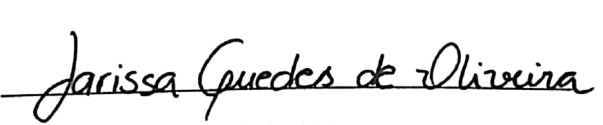 Larissa Guedes de Oliveira